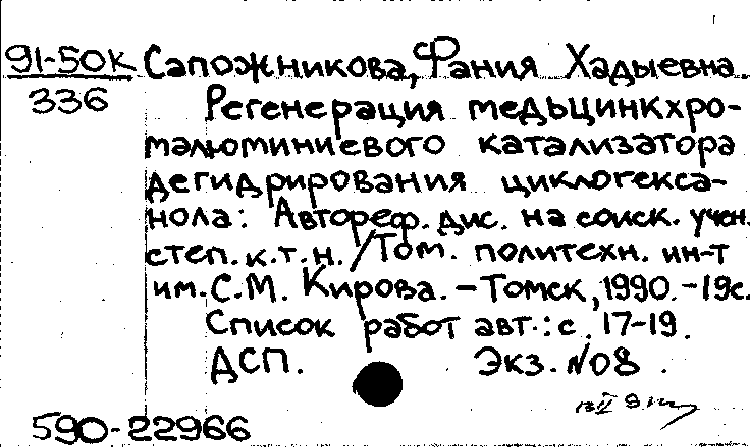 91-50К Сапожникова, Фания Хадыевна.
336 Регенерация медьцинкхро-
малюминиевого катализатора
дегидрирования циклогекса-
нола: Автореф. дис. на соиск. учен.
степ. к.т.н. / Том. политехн. ин-т
им. С.М. Кирова. - Томск, 1990. - 19с.
Список работ авт.: с. 17-19.
ДСП. Экз. №08.
590-22966